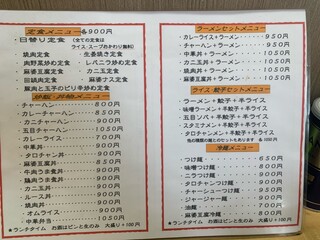 定食メニュー ￥900円
・日替り定食 (全ての定食は
ライス・スープおかわり無料)
焼肉定食 生姜焼き定食
肉野菜炒め定食 レバニラ炒め定食
麻婆豆腐定食 カニ玉定食
回鍋肉定食 麻婆ナス定食
豚肉と玉子のピリ辛炒め定食
炒飯・丼物メニュー
・チャーハン 800円
・カレーチャーハン 850円
・カニチャーハン 900円
・五目チャーハン 1050円
・カレーライス 700円
・中華丼 900円
・タロチャン丼 900円
・麻婆丼 850円
・牛肉うま煮丼 900円
・鶏肉うま煮丼 900円
・カニ玉丼 900円
・ルース丼 900円
・焼肉丼 900円
・オムライス 900円
・中華弁当 1050円
★ランチタイム お酒はビンと生のみ 大盛り+100円
ラーメンセットメニュー
・カレーライス+ラーメン 950円
・チャーハン+ラーメン 950円
・中華丼+ラーメン 1050円
・カニ玉丼+ラーメン 1050円
・麻婆丼+ラーメン 1050円
・焼肉丼+ラーメン 1050円
ライス・餃子セットメニュー
・ラーメン+半餃子+半ライス
・味噌ラーメン+半餃子+半ライス
・五目ソバ+半餃子+半ライス
・スタミナメン+半餃子+半ライス
・タロチャンメン+半餃子+半ライス
冷麺メニュー
・つけ麺 850円
・味噌つけ麺 900円
・ニラつけ麺 900円
・タロチャンつけ麺 950円
・チャーシューつけ麺 1100円
・ジャージャー麺 900円
・油麺 700円
・麻婆豆腐冷麺 800円
★ランチタイム お酒はビンと生のみ 大盛り+100円